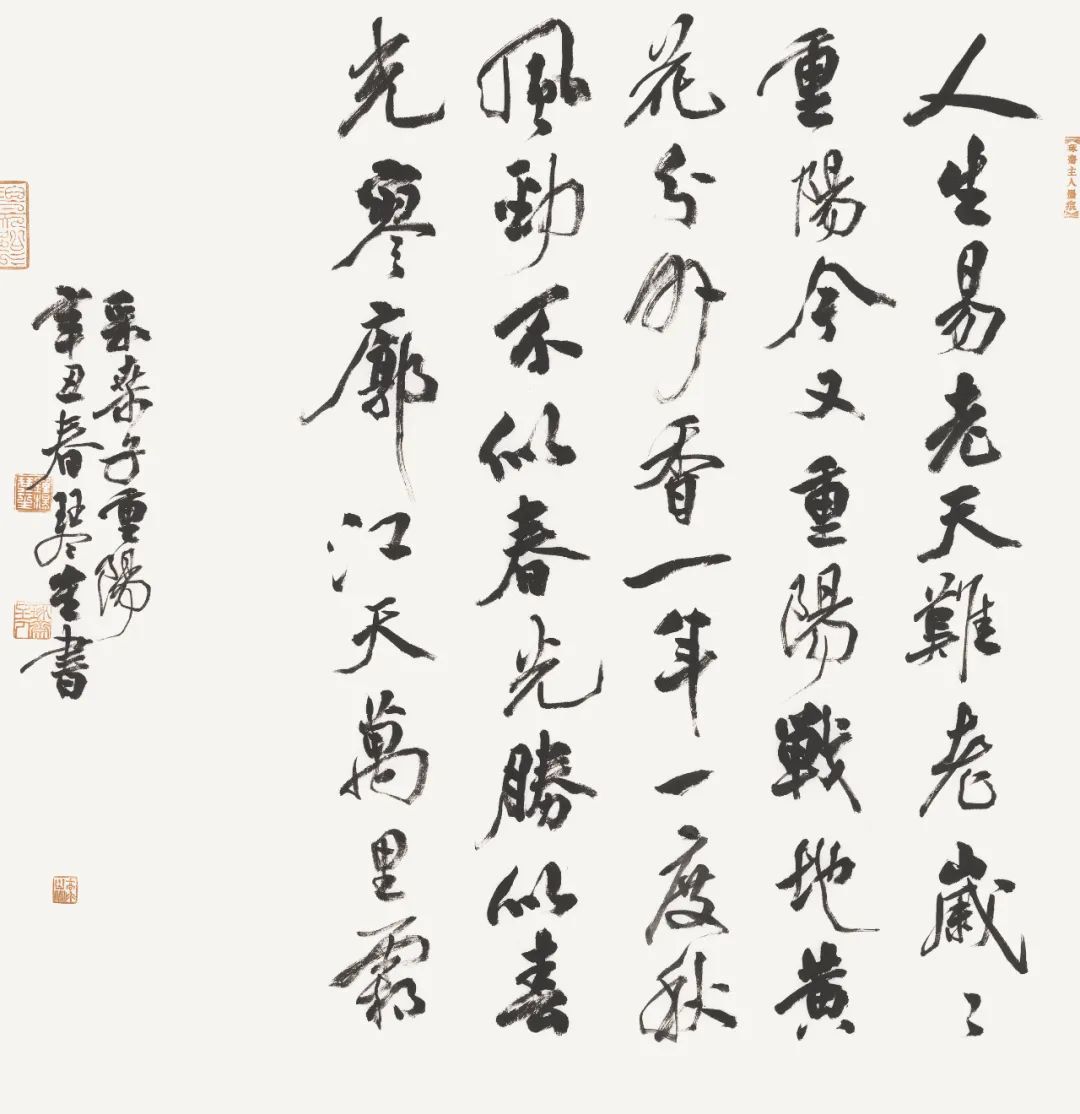 人生易老天難老歲〻
重陽今又重陽戰地黄
花分外香一年一度秋
風勁不似春光勝似春
光寥廓江天萬里霜
采桑子重陽
辛丑春書